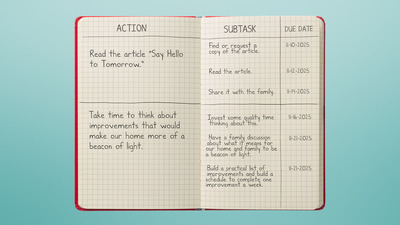 ACTION
SUBTASK
DUE DATE
Read the article "Say Hello
to Tomorrow."
Find or request a
copy of the article.
11-10-2025
Read the article.
11-12-2025
Share it with the family.
11-14-2025
Take time to think about
improvements that would
make our home more of a
beacon of light.
Invest some quality time
thinking about this.
11-16-2025
Have a family discussion
about what it means for
our home and family to be
a beacon of light.
11-21-2025
Build a practical list of
improvements and build a
schedule to complete one
improvement a week.
11-21-2025